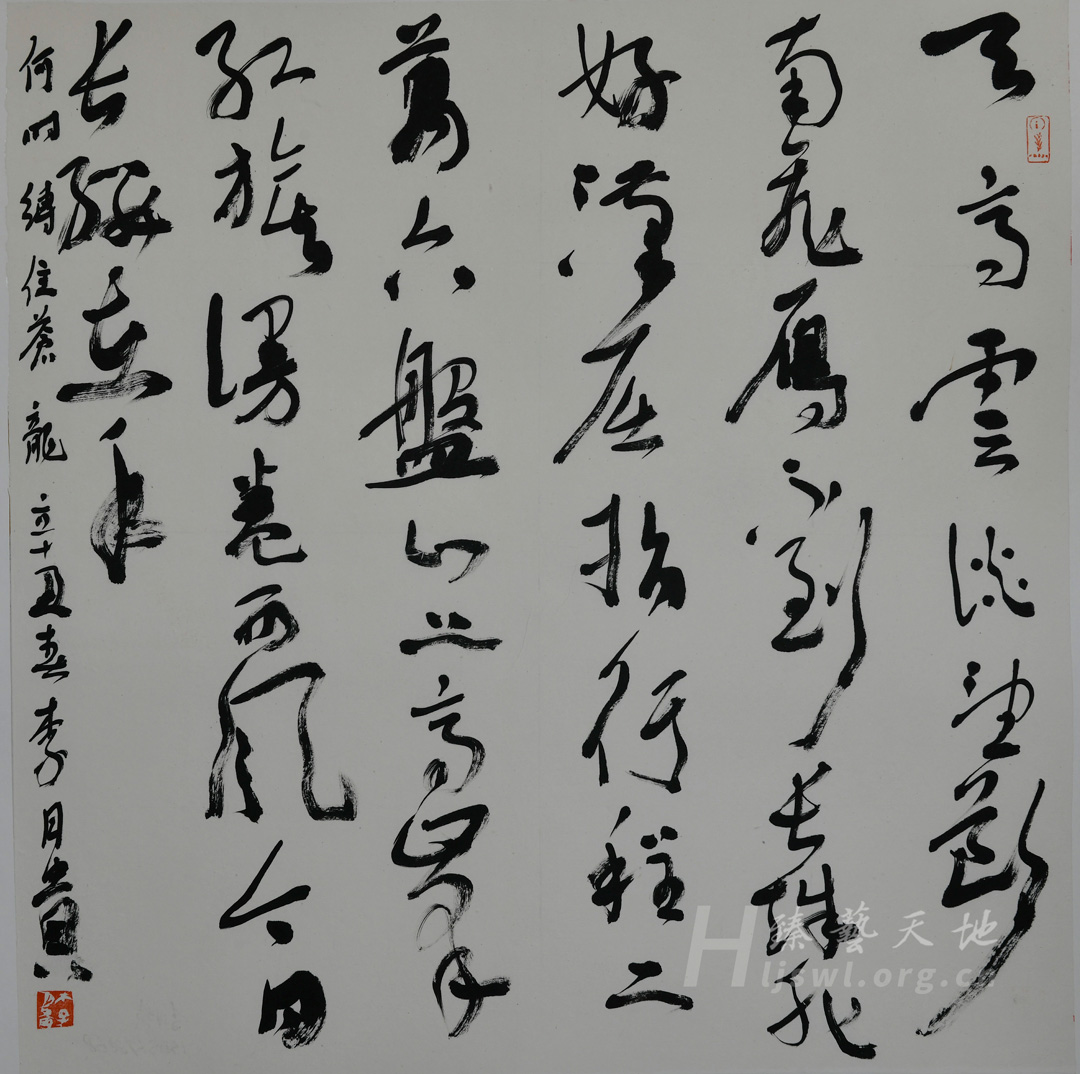 天高雲淡望斷
南飛雁不到長城非
好漢屈指行程二
萬六盤山上高峰
紅旗漫卷西風今日
長纓在手
何時縛住蒼龍 辛丑春李月
臻藝天地
Hljswl.org.cn